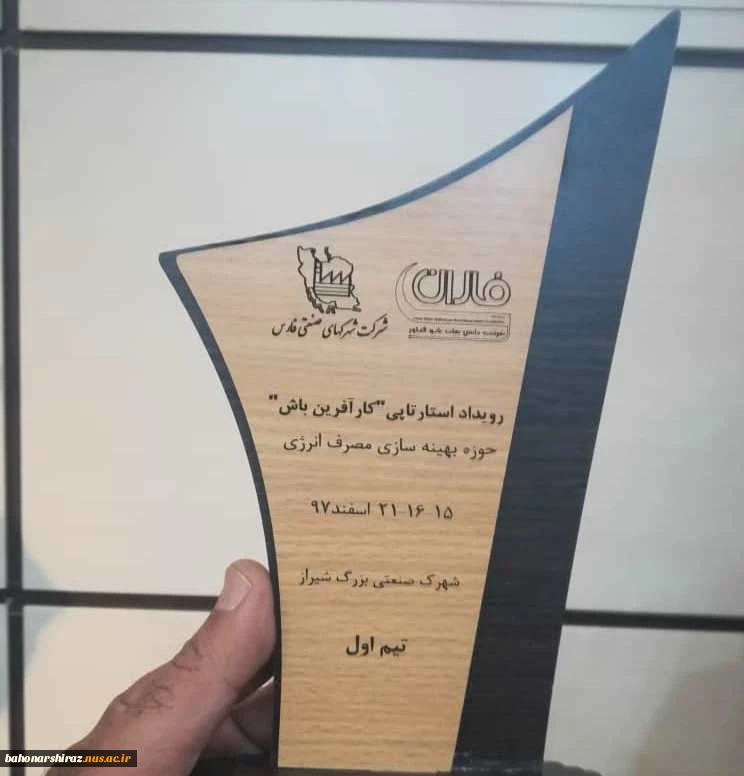 فاران
شرکت شهرکهای صنعتی فارس
رویداد استارتاپی "کارآفرین باش"
حوزه بهینه سازی مصرف انرژی
۱۵-۱۶-۲۱ اسفند ۹۷
شهرک صنعتی بزرگ شیراز
تیم اول
bahonarshiraz.nus.ac.ir